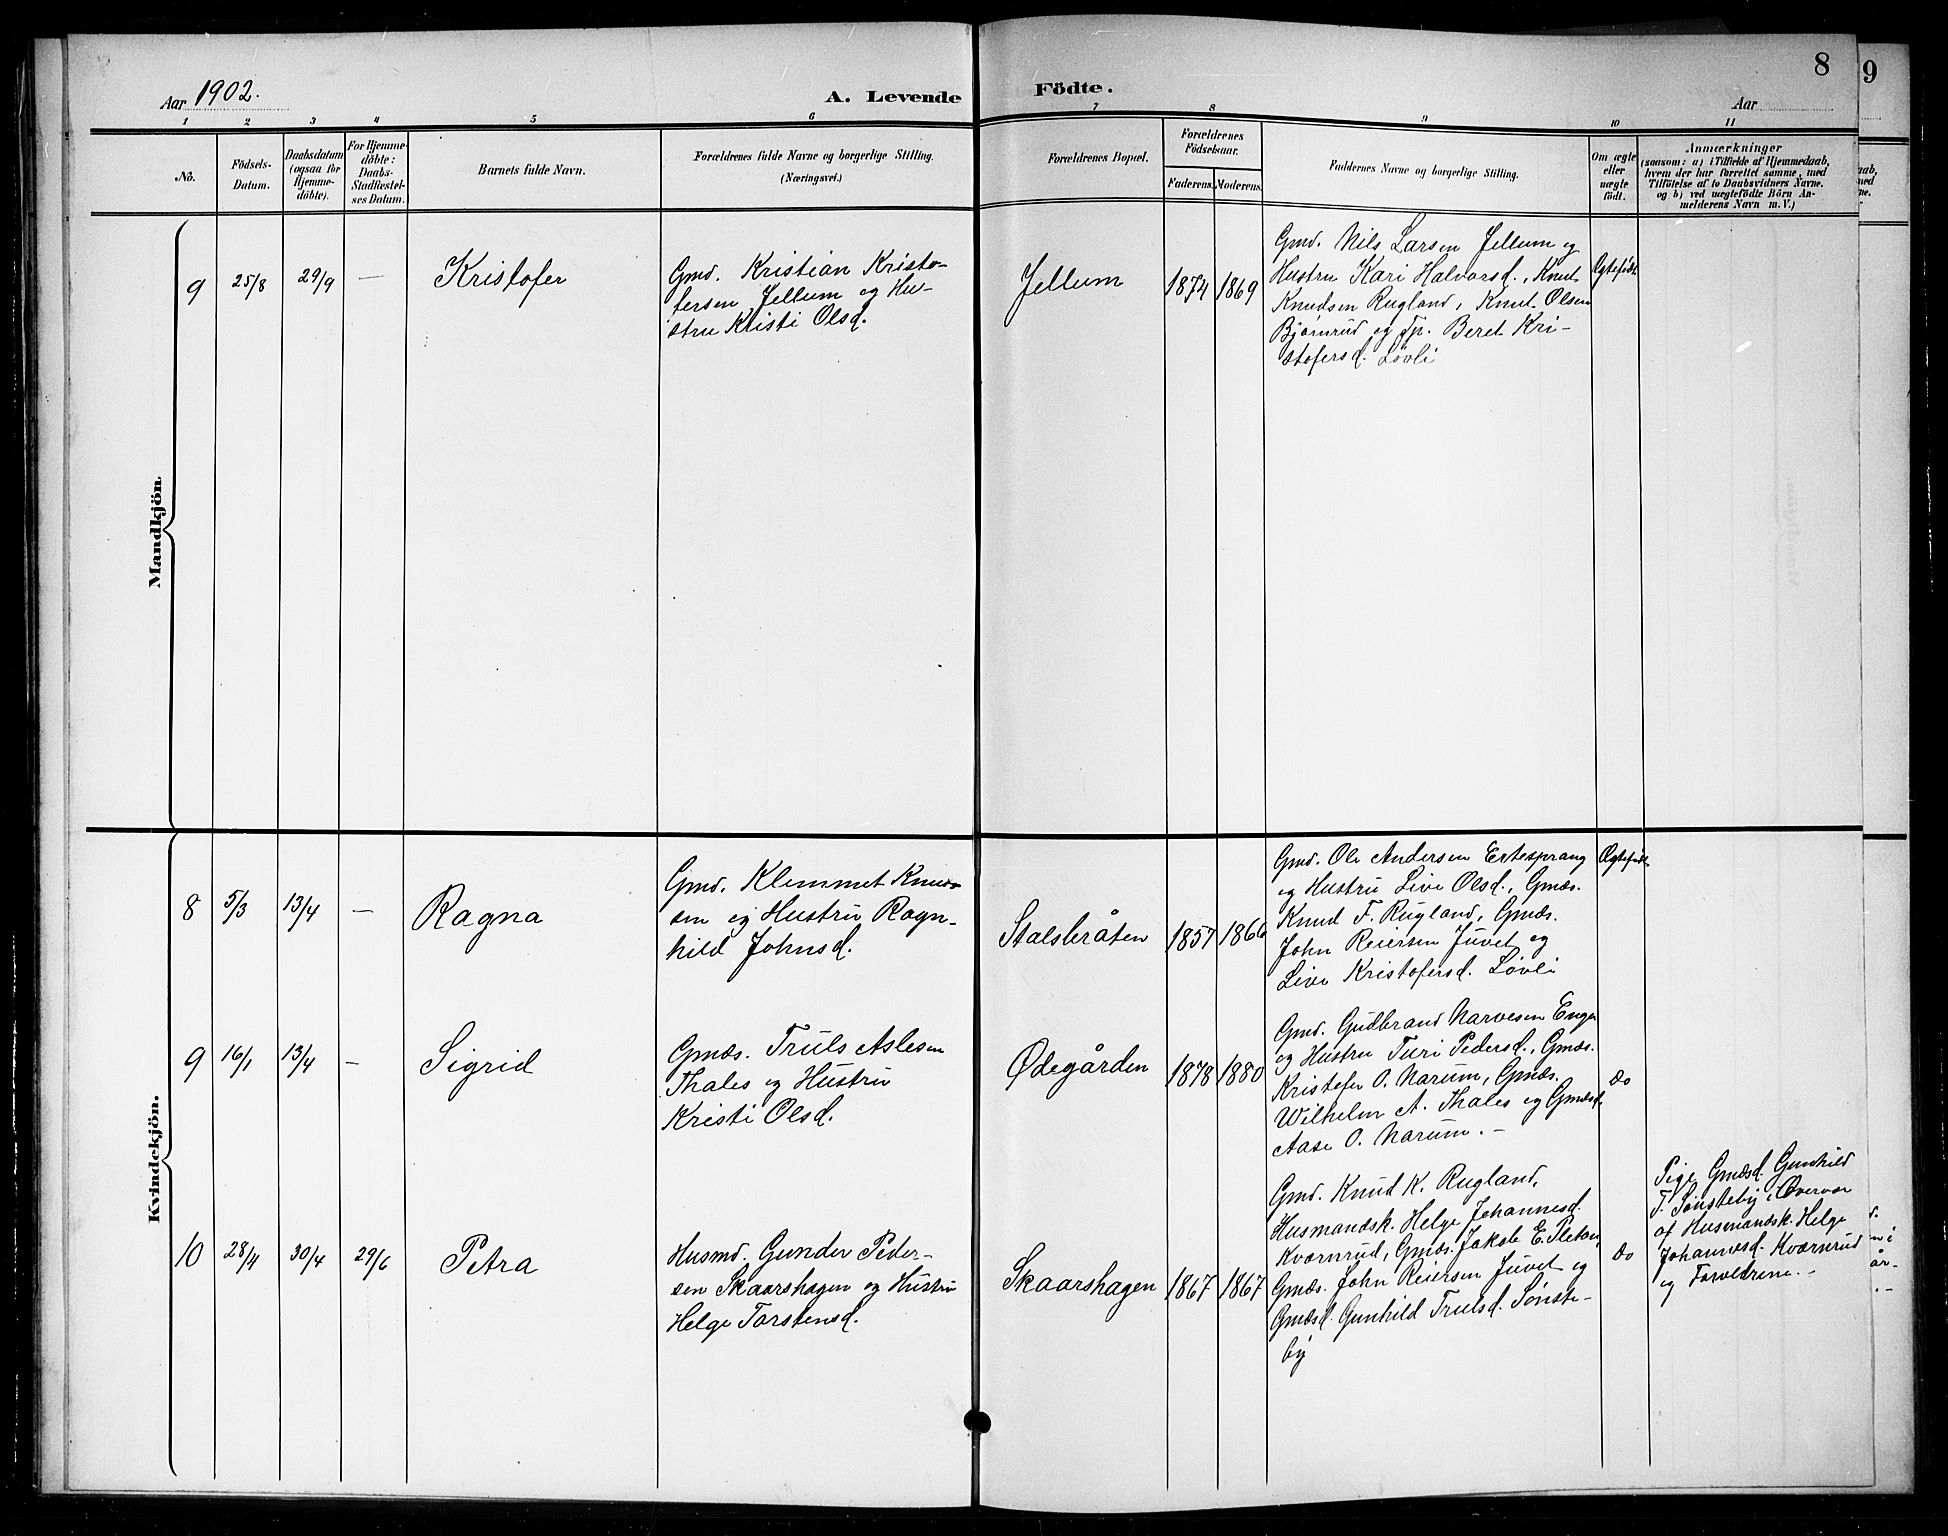 Aar 1902.
A. Levende
Födte.
8
9
Aar
1 2 3 4 5 6 7 8 9 10 11
No.
Födsels-
Datum.
Daabsdatum
(ogsaa for
Hjemme-
döbte).
For Hjemme-
döbte:
Daabs-
Stadfæstel-
ses Datum.
Barnets fulde Navn.
Forældrenes fulde Navne og borgerlige Stilling.
(Næringsvei.)
Forældrenes Bopæl.
Forældrenes
Födselsaar.
Faderens.
Moderens.
Faddernes Navne og borgerlige Stilling.
Om ægte
eller
uægte
födt.
Anmærkninger
(saasom: a) i Tilfælde af Hjemmedaab,
hvem der har forrettet samme, med
Tilföielse af to Daabsvidners Navne.
og b) ved uægtefödte Börn An-
melderens Navn m. V.)
Mandkjön.
9
25/8
29/9
—
Kristofer
Gmd. Kristian Kristo-
fersen Jellum og Hu-
stru Kristi Olsd.
Jellum
1874
1869
Gmd. Nils Larsen Jellum og
Hustru Kari Halvorsd., Knut
Knudsen Rugland, Knut Olsen
Bjørnrud og Tp. Beret Kri-
stofersd. Løvli
Ægtefödt
Kvindekjön.
8
5/3
13/4
—
Ragna
Gmd. Klemmet Knud-
sen og Hustru Ragn-
hild Johnsd.
Stalsbråten
1857
1866
Gmd. Ole Andersen Ertesprang
og Hustru Live Olsd., Gmds.
Knud F. Rugland, Gmds.
John Reiersen Juvet og
Live Kristofersd. Løvli
Ægtefödt
9
16/1
13/4
—
Sigrid
Gmds. Truls Aslesen
Thales og Hustru
Kristi Olsd.
Ødegården
1878
1880
Gmd. Gudbrand Narvesen Enger
og Hustru Turi Pedersd., Gmds.
Kristofer O. Narum, Gmds.
Wilhelm A. Thales og Gmdsd.
Aase O. Narum. —
do
10
28/4
30/4
29/6
Petra
Husmd. Gunder Peder-
sen Skaarshagen og Hustru
Helge Torstensd.
Skaarshagen
1867
1867
Gmd. Knud K. Rugland,
Husmandsk. Helge Johannesd.
Kværnrud, Gmds. Jakob E. Pleten,
Gmds. John Reiersen Juvet og
Gmdsd. Gunhild Trulsd. Sønste-
by
do
Pige Gmdsd. Gunhild
T. Sønsteby i Overvær
af Husmandsk. Helge
Johannesd. Kværnrud
og Forældrene. —